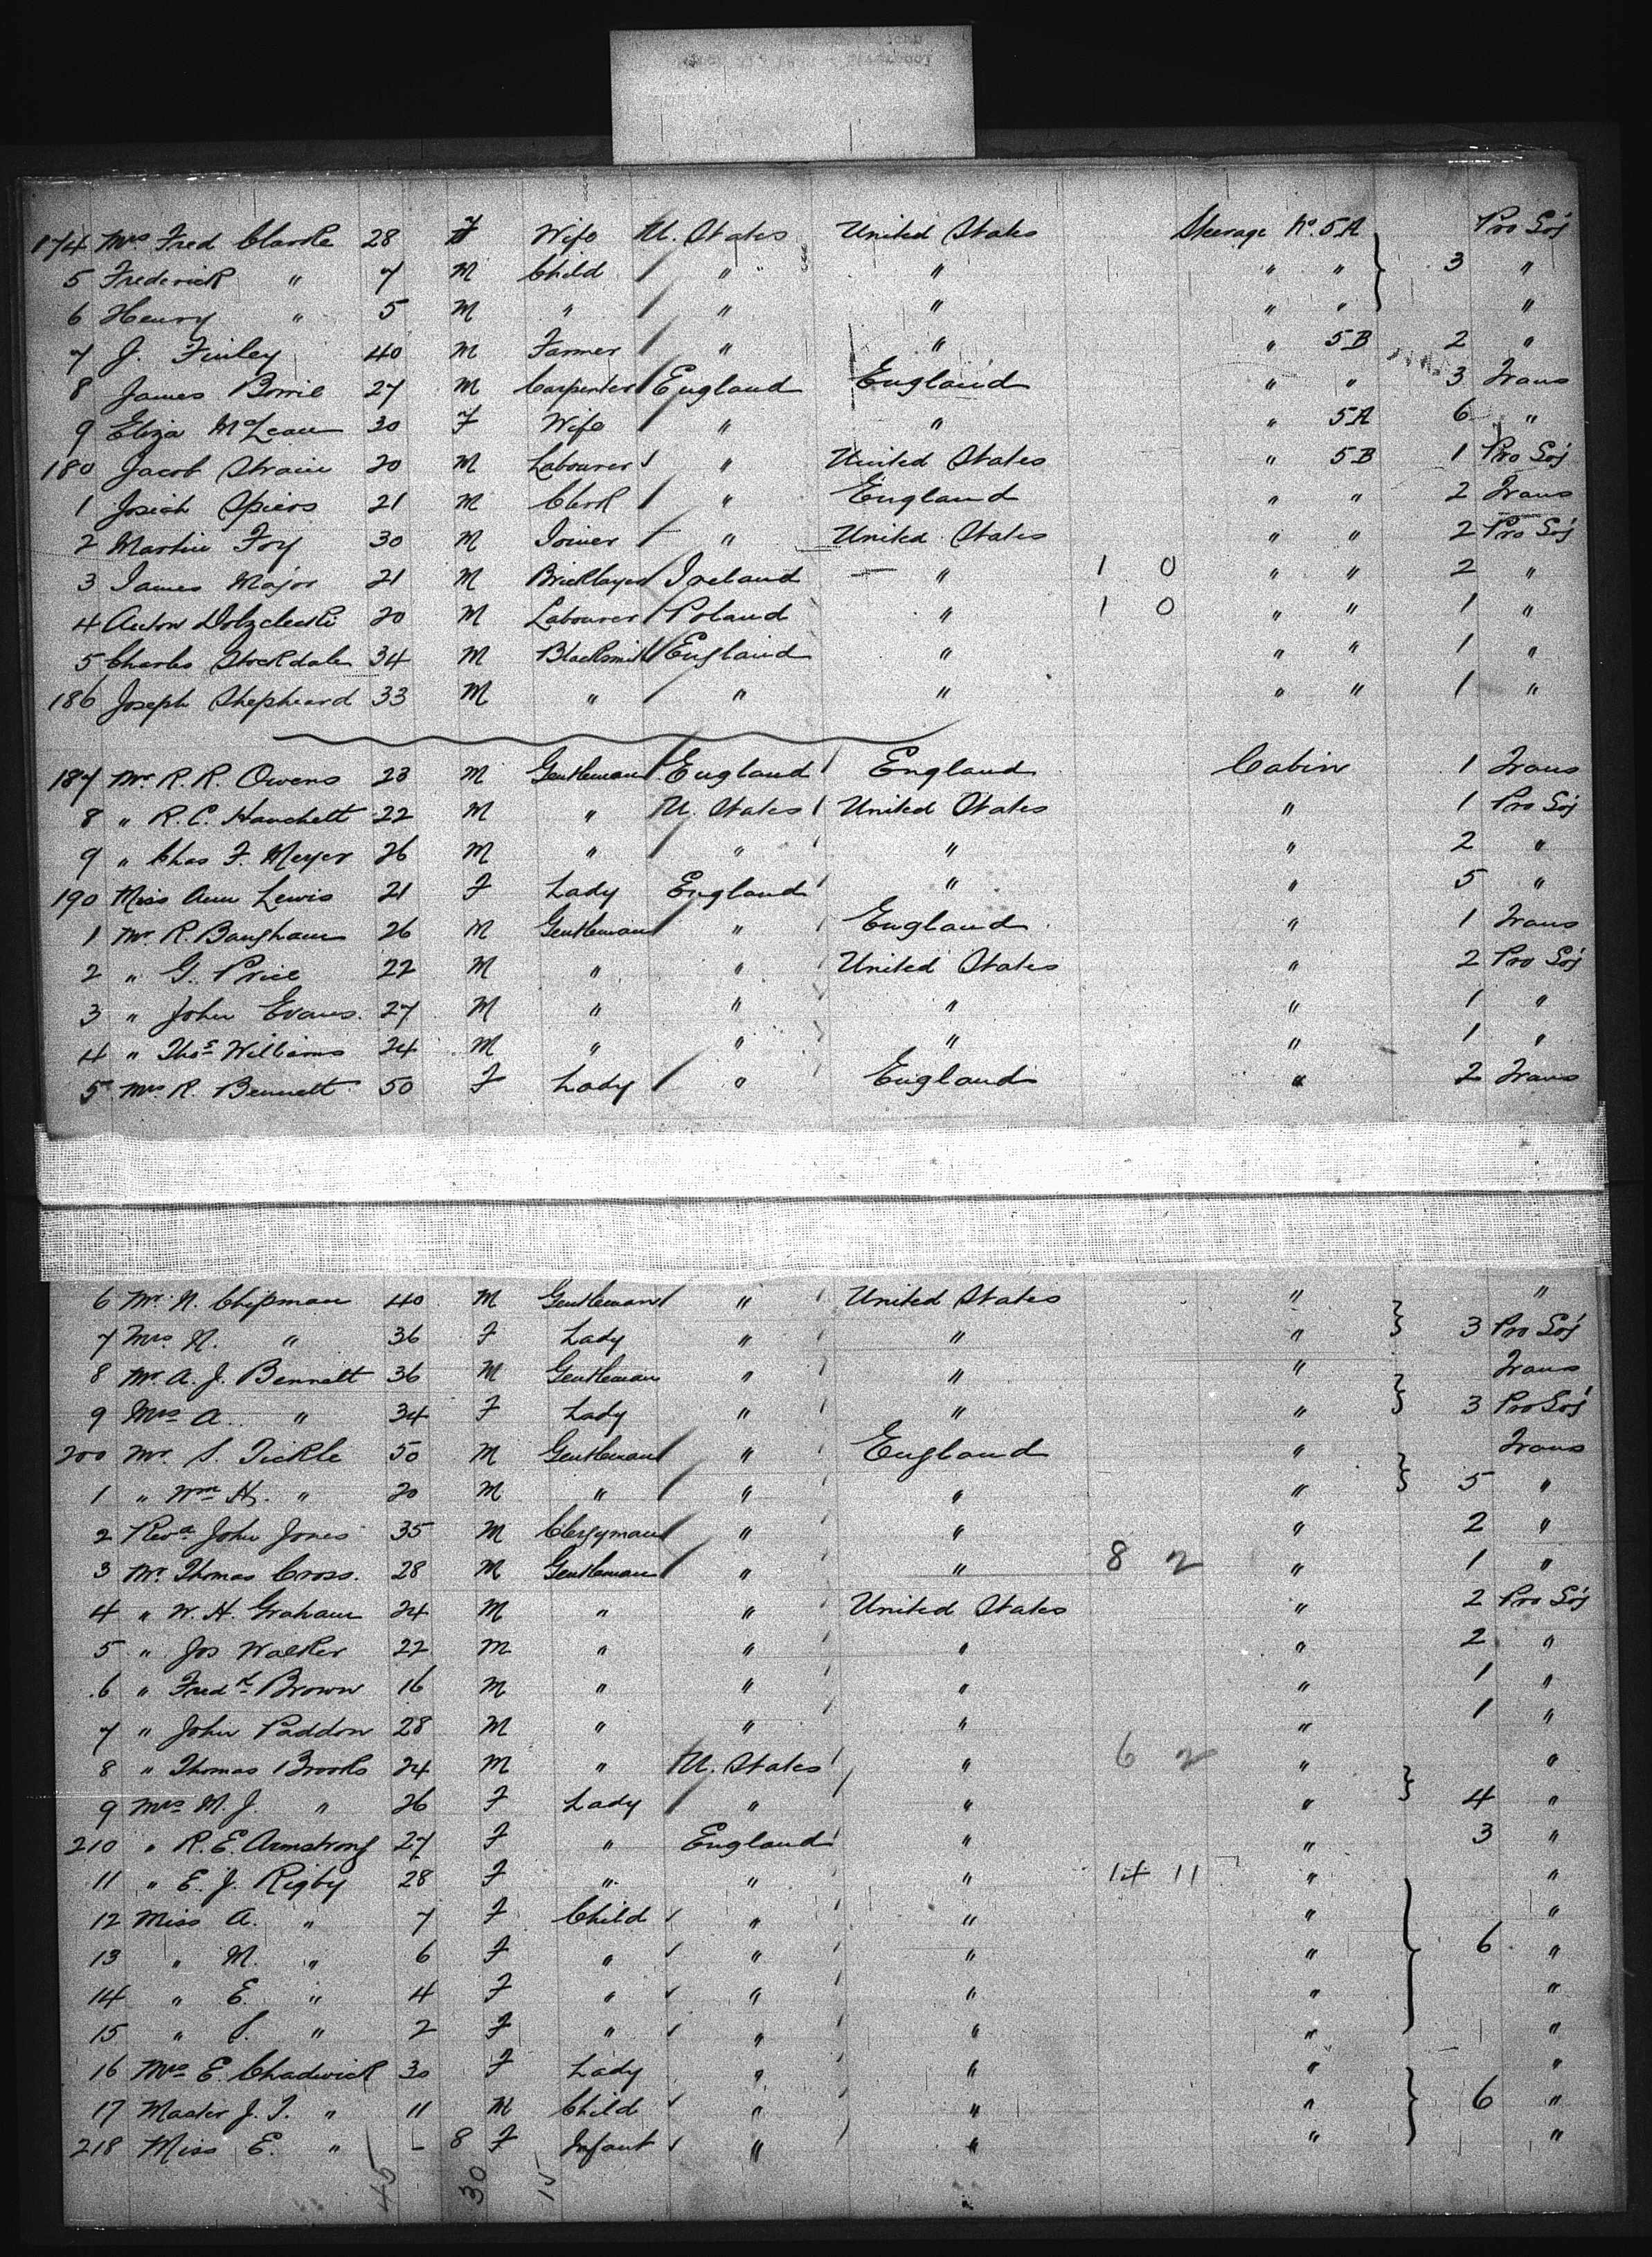 174 Mrs Fred Clarke 28 F Wife U. States United States Steerage No. 5A Pro Soj
5 Frederick " 7 M Child " " " " } 3 "
6 Henry " 5 M " " " " " "
7 J. Finley 40 M Farmer " " " 5B 2 "
8 James Borrie 27 M Carpenter England England " " 3 Trans
9 Eliza McLean 30 F Wife " " " 5A 6 "
180 Jacob Strain 20 M Labourer " United States " 5B 1 Pro Soj
1 Josiah Spiers 21 M Clerk " England " " 2 Trans
2 Martin Foy 30 M Joiner " United States " " 2 Pro Soj
3 James Major 21 M Bricklayer Ireland " 1 0 " " 2 "
4 Anton 20 M Labourer Poland " 1 0 " " 1 "
5 Charles Stockdale 34 M Blacksmith England " " " 1 "
186 Joseph Shepheard 33 M " " " " " 1 "
187 Mr R. R. Owens 23 M Gentleman England England Cabin 1 Trans
8 " R. C. Hanchett 22 M " U. States United States " 1 Pro Soj
9 " Chas F. Meyer 26 M " " " " 2 "
190 Miss Ann Lewis 21 F Lady England " " 5 "
1 Mr. R. Baugham 26 M Gentleman " England " 1 Trans
2 " G. Price 22 M " " United States " 2 Pro Soj
3 " John Evans. 27 M " " " " 1 "
4 " Thos Williams 24 M " " " " 1 "
5 Mrs. R. Bennett 50 F Lady " England " 2 Trans
6 Mr. N. Chipman 40 M Gentleman " United States " "
7 Mrs N. " 36 F Lady " " " } 3 Pro Soj
8 Mr A. J. Bennett 36 M Gentleman " " " Trans
9 Mrs A. " 34 F Lady " " " } 3 Pro Soj
200 Mr. S. Tickle 50 M Gentleman " England " Trans
1 " Wm H. " 20 M " " " " } 5 "
2 Revd John Jones 35 M Clergyman " " " 2 "
3 Mr. Thomas Cross. 28 M Gentleman " " 8 2 " 1 "
4 " W. H. Graham 24 M " " United States " 2 Pro Soj
5 " Jos Walker 22 M " " " " 2 "
6 " Fredk Brown 16 M " " " " 1 "
7 " John Paddon 28 M " " " " 1 "
8 " Thomas Brooks 24 M " U. States " 6 2 " "
9 Mrs M. J. " 26 F Lady " " " } 4 "
210 " R. E. Armstrong 27 F " England " " 3 "
11 " E. J. Rigby 28 F " " " 14 11 " "
12 Miss A. " 7 F Child " " " "
13 " M. " 6 F " " " " } 6 "
14 " E. " 4 F " " " " "
15 " S. " 2 F " " " " "
16 Mrs E. Chadwick 30 F Lady " " " "
17 Master J. T. " 11 M Child " " " } 6 "
218 Miss E. " - 8 F Infant " " " "
45 30 15